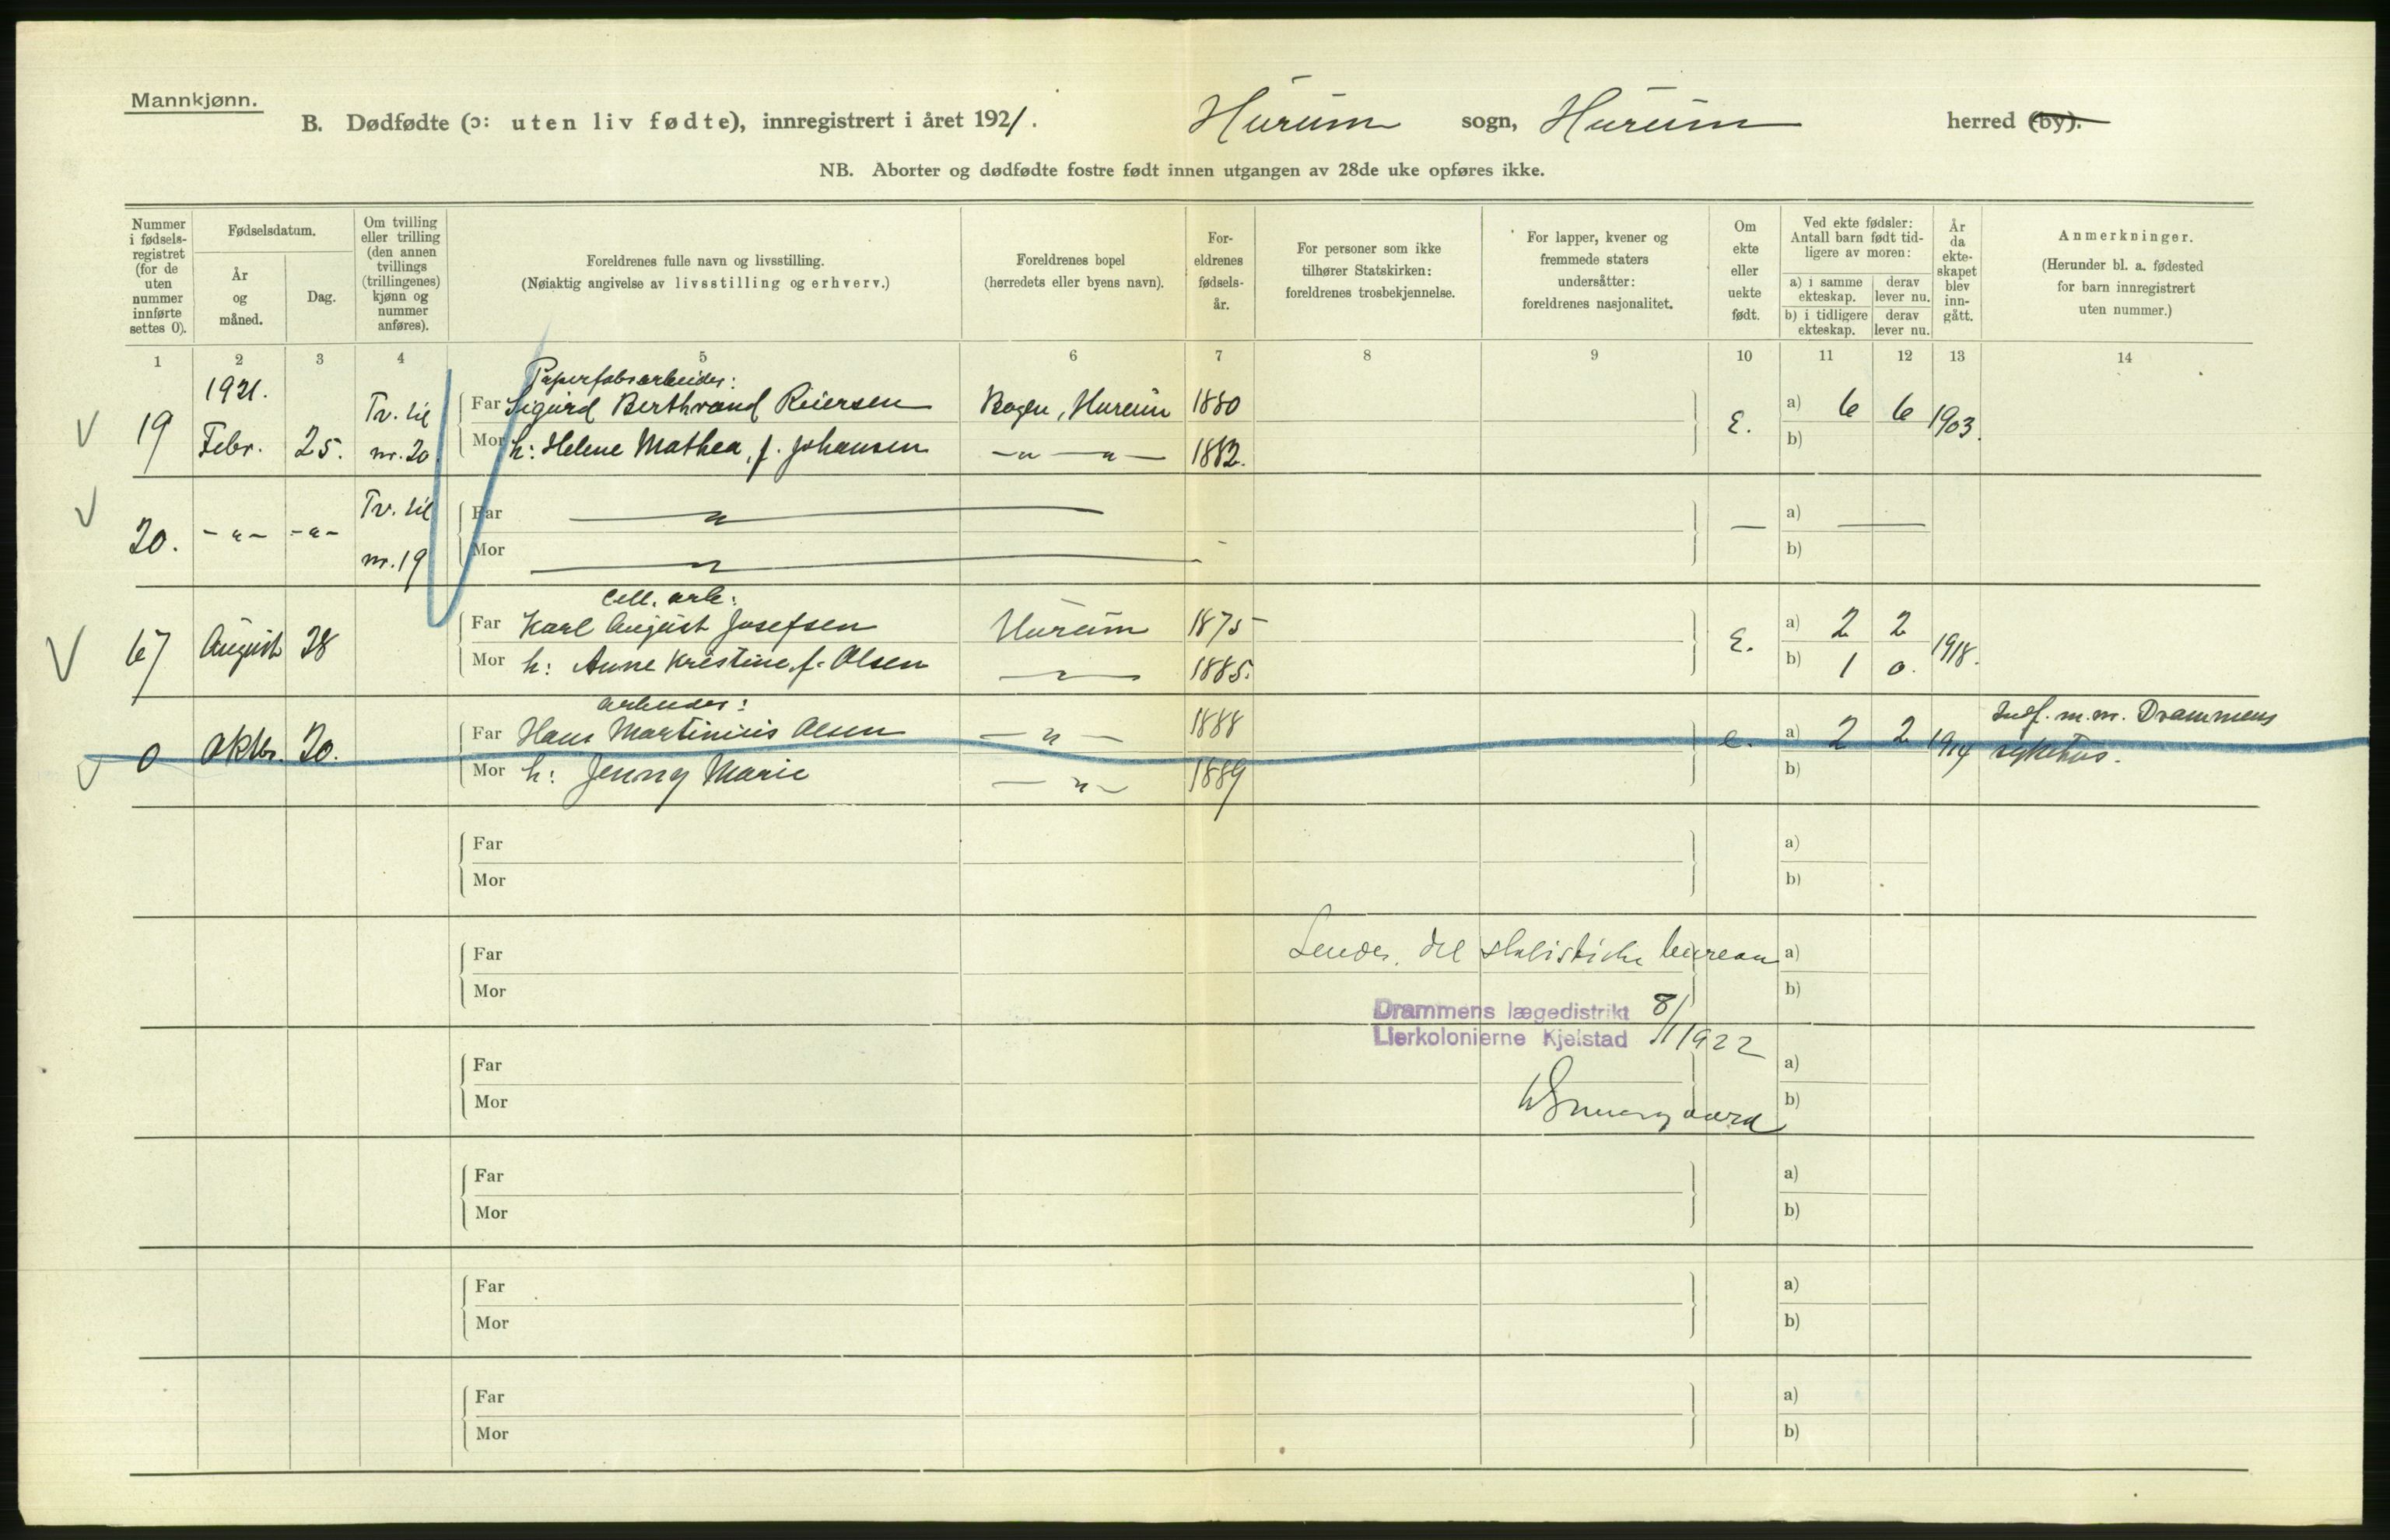 Mannkjønn.
B. Dødfødte (ɔ: uten liv fødte), innregistrert i året 1921. Hurum sogn, Hurum herred (by).
NB. Aborter og dødfødte fostre født innen utgangen av 28de uke opføres ikke.
Nummer i fødsels-registret (for de uten nummer innførte settes 0).
Fødselsdatum.
År og måned.
Dag.
Om tvilling eller trilling (den annen tvillings (trillingenes) kjønn og nummer anføres).
Foreldrenes fulle navn og livsstilling.
(Nøiaktig angivelse av livsstilling og erhverv.)
Foreldrenes bopel
(herredets eller byens navn).
For-eldrenes fødsels-år.
For personer som ikke tilhører Statskirken: foreldrenes trosbekjennelse.
For lapper, kvener og fremmede staters undersåtter: foreldrenes nasjonalitet.
Om ekte eller uekte født.
Ved ekte fødsler: Antall barn født tid-ligere av moren:
a) i samme ekteskap. derav lever nu.
b) i tidligere ekteskap. derav lever nu.
År da ekte-skapet blev inn-gått.
Anmerkninger.
(Herunder bl. a. fødested for barn innregistrert uten nummer.)
1 2 3 4 5 6 7 8 9 10 11 12 13 14
1921. Paperfabrarbeider:
19 Febr. 25. Tv. til nr. 20 Far Sigurd Berthrand Reiersen Bogen, Hurum 1880 E. a) 6 6 1903.
Mor h: Helene Mathea, f. Johansen -"- -"- 1882. b)
20. -"- -"- Tv. til nr. 19 Far -"- — a) —
Mor -"- b)
Cell. arb:
67 August 28 Far Karl August Josefsen Hurum 1875 E. a) 2 2 1918.
Mor h: Anne Kristine, f. Olsen -"- 1885. b) 1 0.
arbeider:
0 Oktbr. 20. Far Hans Martinius Olsen -"- 1888 e. a) 2 2 1914 Indf. m.m. Drammens sykehus.
Mor h: Jenny Marie -"- 1889 b)
Far a)
Mor b)
Sendes det statistiske bureau
Far a)
Mor b)
Drammens lægedistrikt 8/1 1922
Lierkolonierne Kjelstad
Far a)
Mor b)
Far a)
Mor b)
Far a)
Mor b)
Far a)
Mor b)